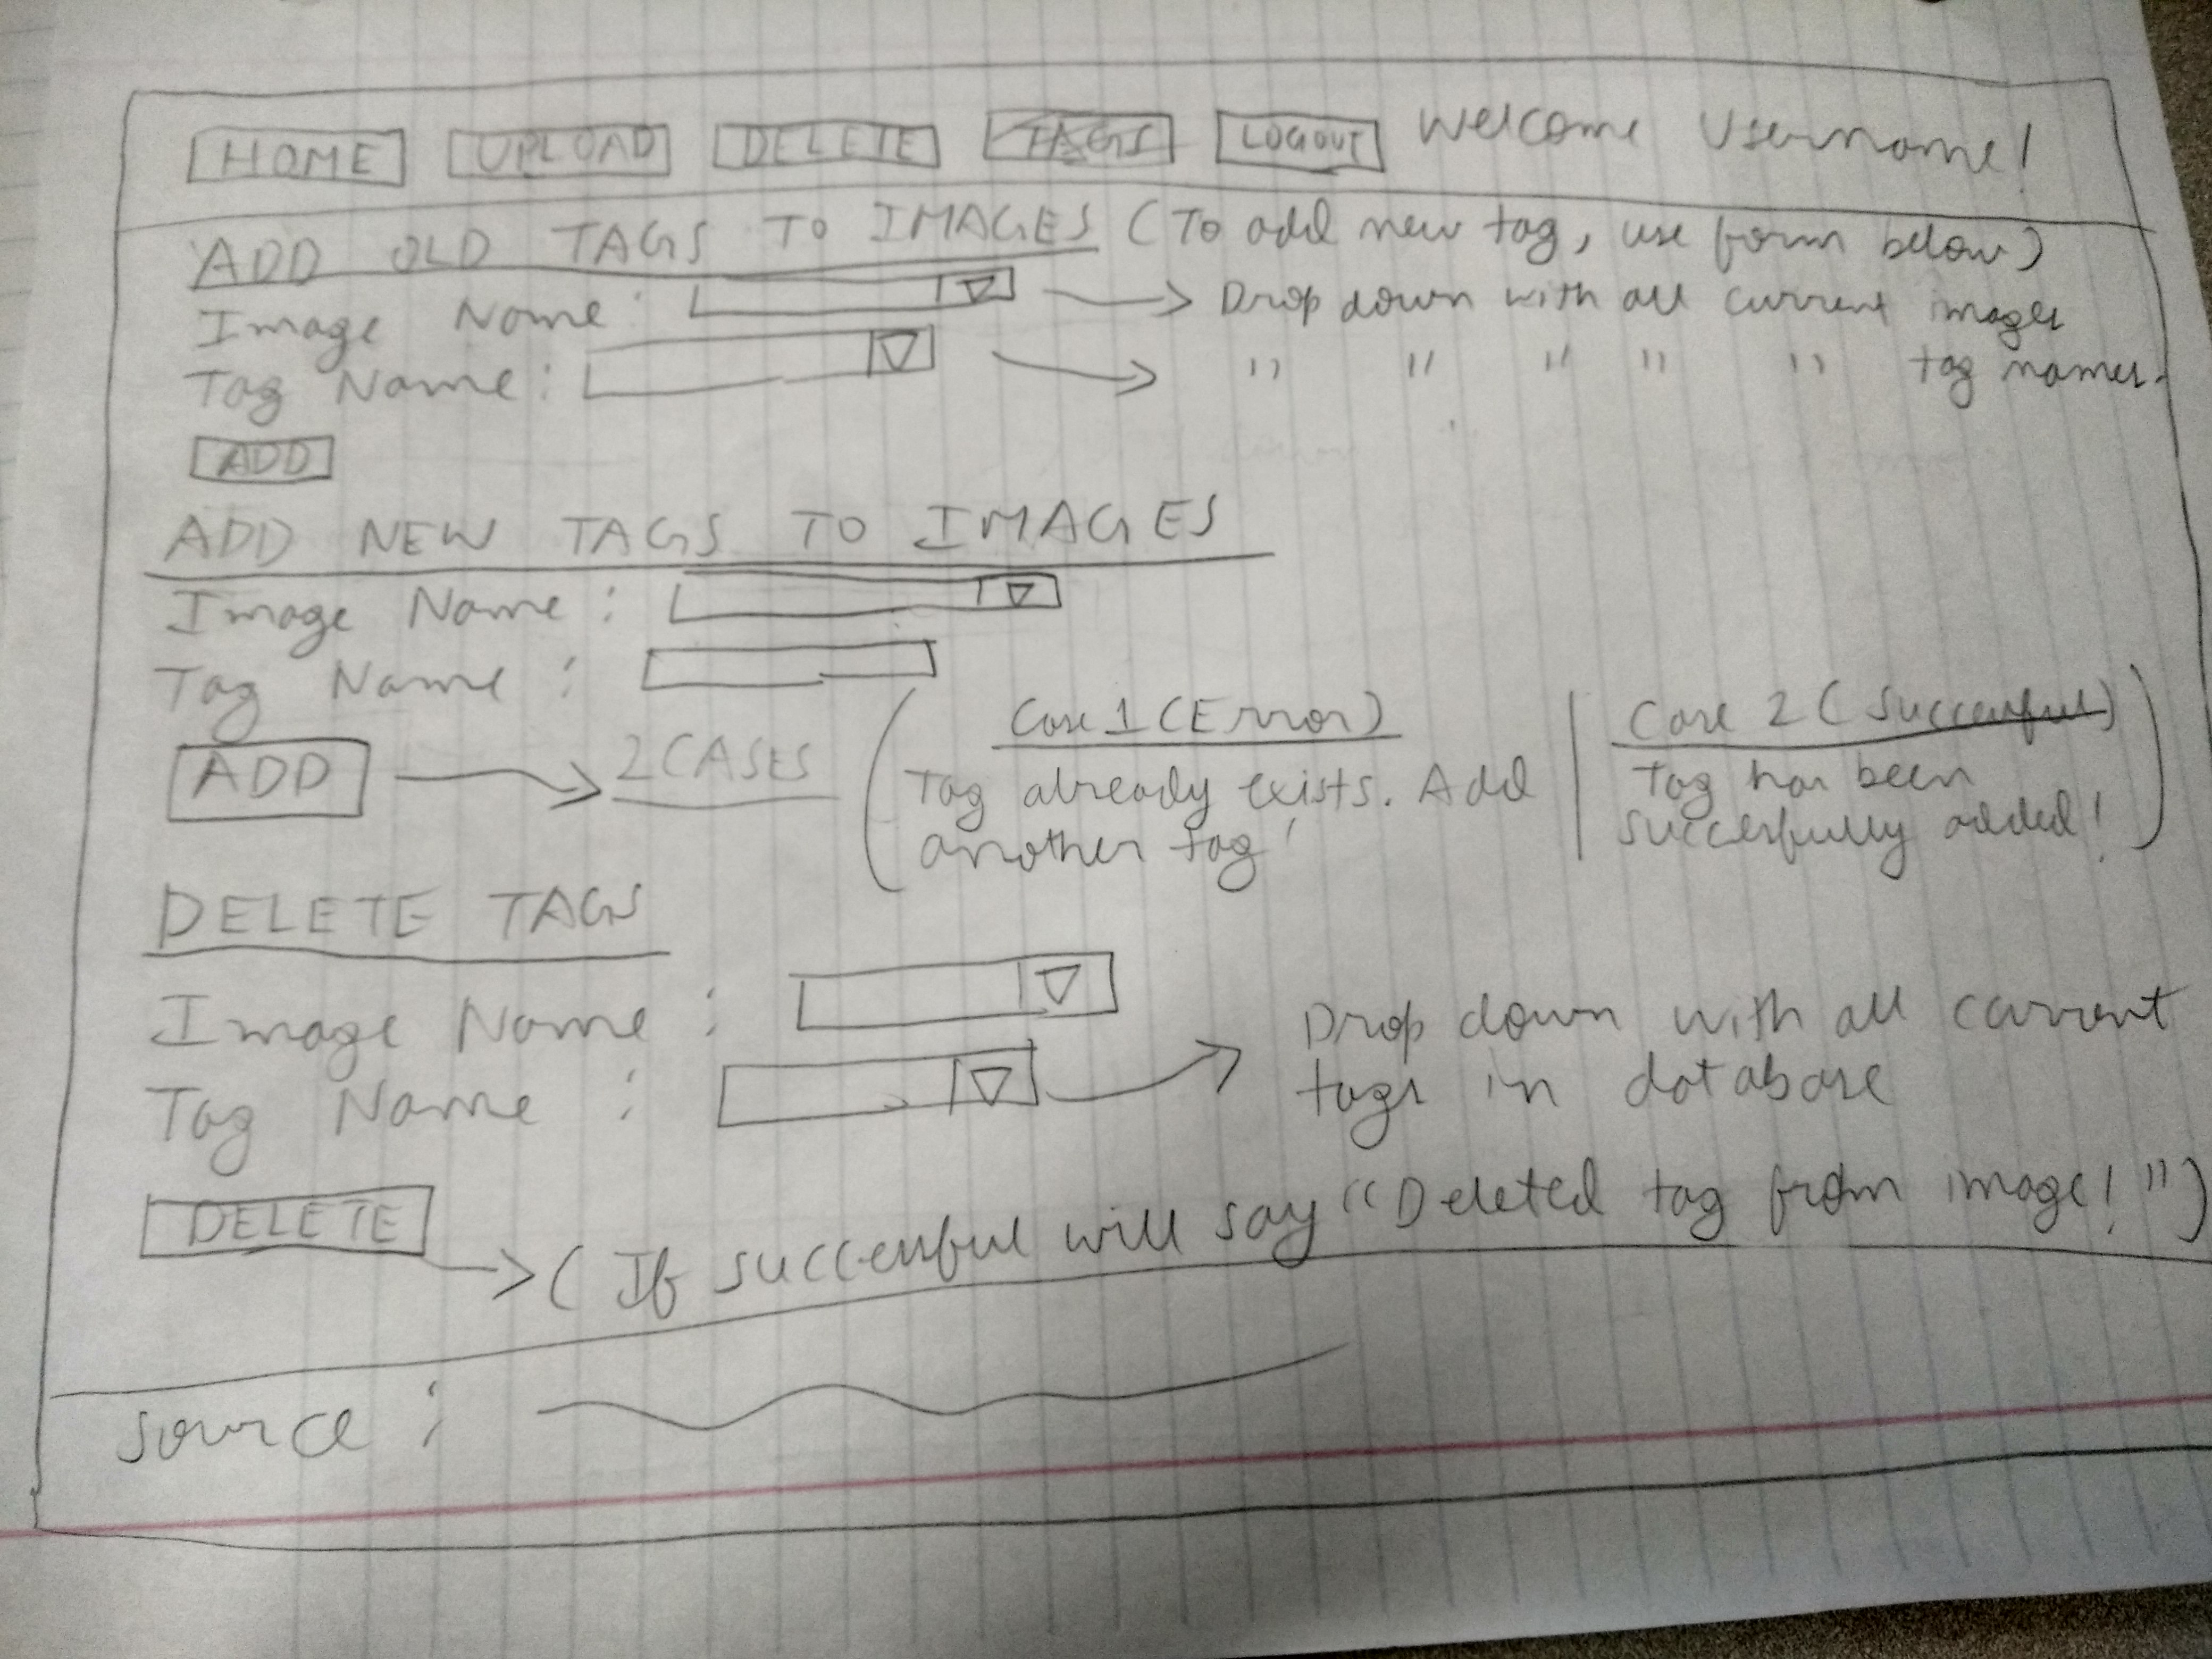 HOME UPLOAD DELETE TAGS LOGOUT Welcome Username!
ADD OLD TAGS TO IMAGES (To add new tag, use form below)
Image Name : → Drop down with all current images
Tag Name : → " " " " " tag names.
ADD
ADD NEW TAGS TO IMAGES
Image Name :
Tag Name :
ADD → 2 CASES
Case 1 (Error)
Tag already exists. Add
another tag!
Case 2 (Successful)
Tag has been
successfully added!
DELETE TAGS
Image Name :
Tag Name : → Drop down with all current
tags in database
DELETE → (If successful will say "Deleted tag from image!")
Source :